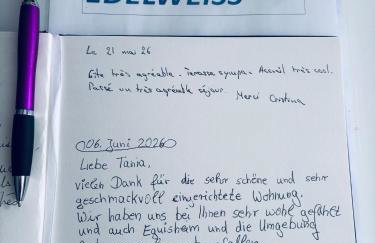 EDELWEISS
Le 21 mai 26
Gîte très agréable. Terrasse sympa. Accueil très cool.
Passé un très agréable séjour.
Merci Cristina
06. Juni 2026
Liebe Tania,
vielen Dank für die sehr schöne und sehr
geschmackvoll eingerichtete Wohnung.
Wir haben uns bei Ihnen sehr wohl gefühlt
und auch Eguisheim und die Umgebung